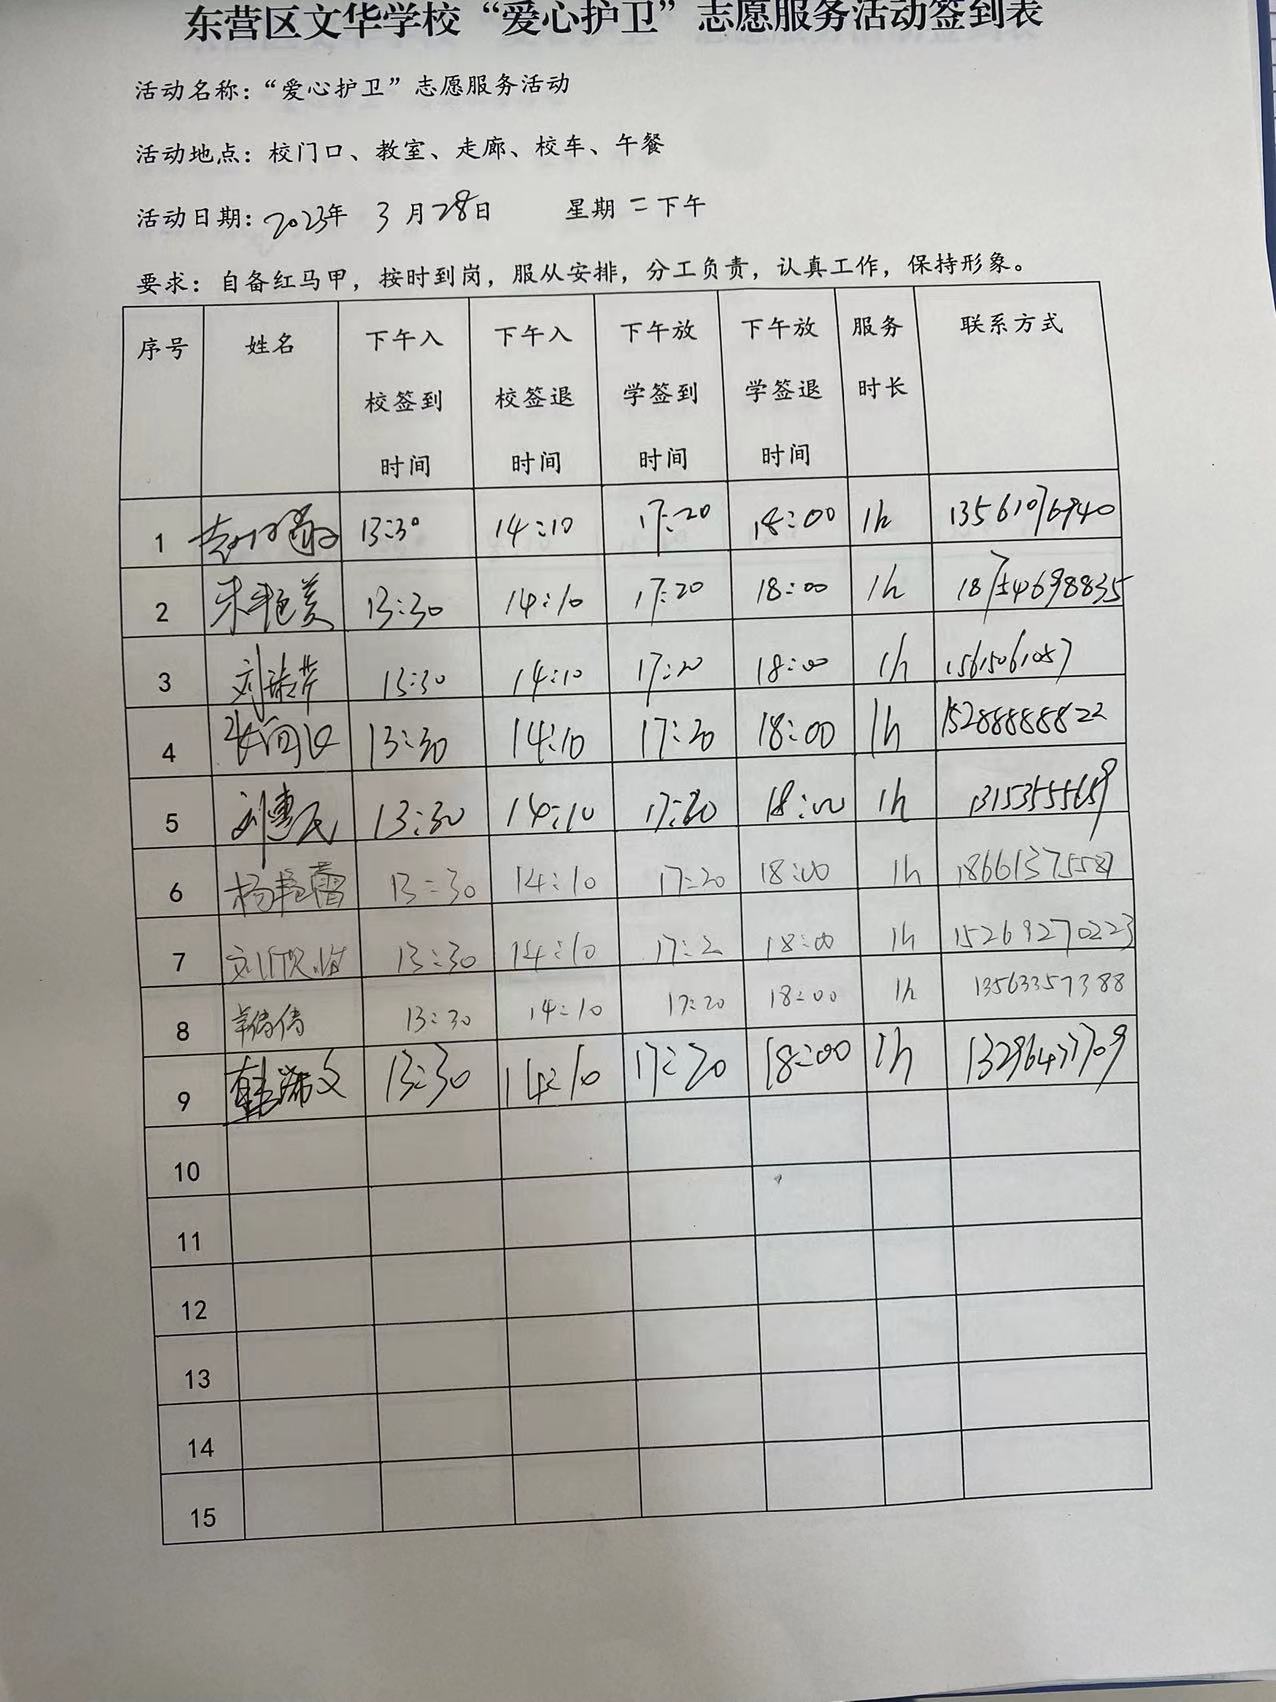 东营区文华学校“爱心护卫”志愿服务活动签到表
活动名称：“爱心护卫”志愿服务活动
活动地点：校门口、教室、走廊、校车、午餐
活动日期：2023年 3 月28日 星期 二 下午
要求：自备红马甲，按时到岗，服从安排，分工负责，认真工作，保持形象。
序号 姓名 下午入校签到时间 下午入校签退时间 下午放学签到时间 下午放学签退时间 服务时长 联系方式
1 13:30 14:10 17:20 18:00 1h 13561076940
2 朱艳美 13:30 14:10 17:20 18:00 1h 18754698835
3 13:30 14:10 17:20 18:00 1h 15615061057
4 13:30 14:10 17:20 18:00 1h 15288888822
5 刘惠民 13:30 14:10 17:20 18:00 1h 13153555659
6 杨艳蕾 13:30 14:10 17:20 18:00 1h 18661375581
7 13:30 14:10 17:2 18:00 1h 15269270223
8 13:30 14:10 17:20 18:00 1h 13563357388
9 韩瑞文 13:30 14:10 17:20 18:00 1h 13296477709
10
11
12
13
14
15